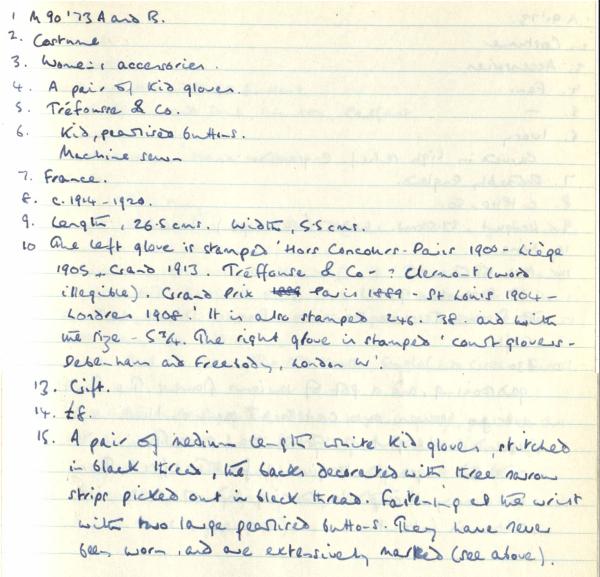 1 M90'73 A and B.
2. Costume
3. Women's accessories.
4. A pair of Kid gloves.
5. Tréfousse & Co.
6. Kid, pearlised buttons.
Machine sewn
7. France.
8. c.1914-1920.
9. Length, 26.5 cms. Width, 5.5 cms.
10 The left glove is stamped 'Hors Concours - Paris 1900 - Liège
1905, Gand 1913. Tréffouse & Co - ? Clermont (word
illegible). Grand Prix 1889 Paris 1889 - St Louis 1904 -
Londres 1908.' It is also stamped 246. 38. and with
the size - 5¾. The right glove is stamped 'court glovers -
Debenham and Freebody, London W'.
13. Gift.
14. £8.
15. A pair of medium length white kid gloves, stitched
in black thread, the backs decorated with three narrow
strips picked out in black thread. Fastening at the wrist
with two large pearlised buttons. They have never
been worn, and are extensively marked (see above).